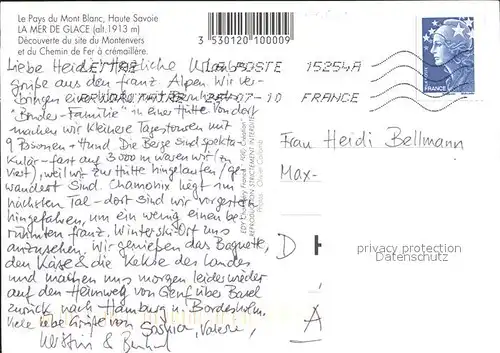 Le Pays du Mont Blanc, Haute Savoie
LA MER DE GLACE (alt. 1913 m)
Découverte du site du Montenvers
et du Chemin de Fer à crémaillère.
3 530120 100009
LA POSTE 15254A
07-10 FRANCE
FRANCE
Liebe Heidi, Herzliche
grüße aus den franz. Alpen. Wir ver-
bringen eine mit
"Bender-Familie" in einer Hütte. Von dort
machen wir kleinere Tagestouren mit
9 Personen + Hund. Die Berge sind spekta-
kulär - fast auf 3000 m waren wir (zu
viert), weil wir zur Hütte hingelaufen/ge-
wandert sind. Chamonix liegt im
nächsten Tal - dort sind wir vorgestern
hingefahren, um ein wenig einen be-
rühmten franz. Winterski-Ort uns
anzusehen. Wir genießen das Baguette,
den Käse & die Kekse des Landes
und machen uns morgen leider wieder
auf den Heimweg von Genf über Basel
zurück nach Hamburg u. Bordesholm.
Viele liebe Grüße von Saskia, Valerie,
Kerstin &
REPRODUCTION STRICTEMENT INTERDITE
Frau Heidi Bellmann
Max-
D
A
privacy protection
Datenschutz